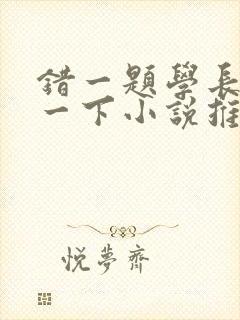 錯一題學長
一下小說推
悅夢齋